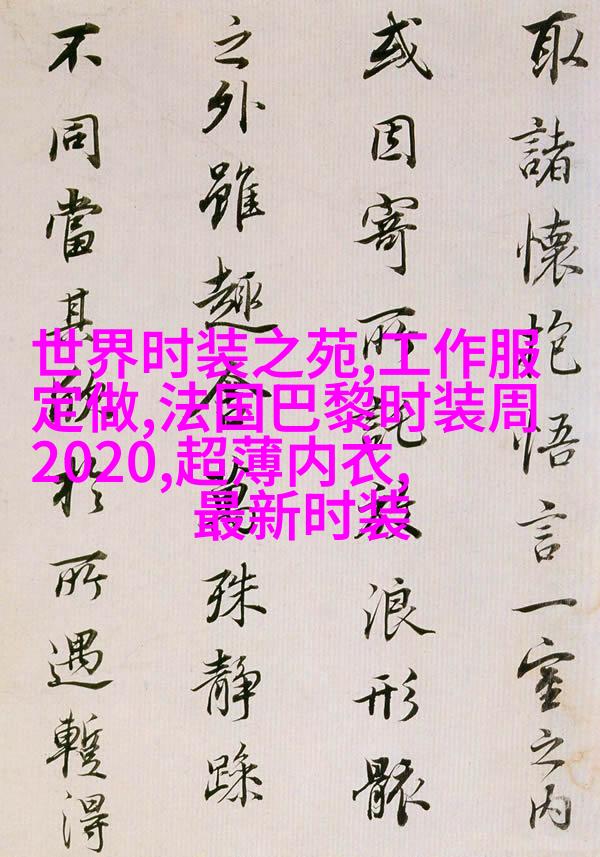 取諸懷抱悟言一室之內
或因寄所託放浪形骸
之外雖趣舍萬殊靜躁
不同當其欣於所遇暫得
世界时装之苑,工作服
定做,法国巴黎时装周
2020,超薄内衣,
最新时装